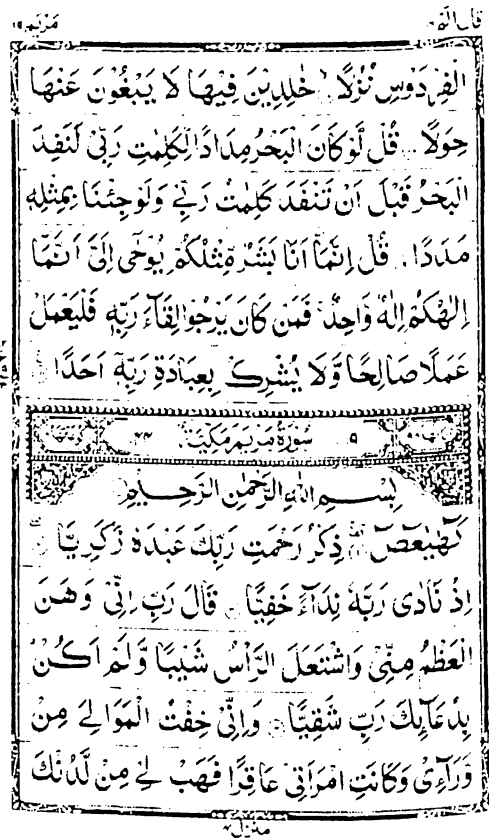 قال الم ١٦
مريم ١٩
الْفِرْدَوْسِ نُزُلًا خٰلِدِيْنَ فِيْهَا لَا يَبْغُوْنَ عَنْهَا
حِوَلًا قُلْ لَّوْ كَانَ الْبَحْرُ مِدَادًا لِّكَلِمٰتِ رَبِّيْ لَنَفِدَ
الْبَحْرُ قَبْلَ اَنْ تَنْفَدَ كَلِمٰتُ رَبِّيْ وَلَوْ جِئْنَا بِمِثْلِهٖ
مَدَدًا قُلْ اِنَّمَاۤ اَنَا بَشَرٌ مِّثْلُكُمْ يُوْحٰۤى اِلَيَّ اَنَّمَاۤ
اِلٰهُكُمْ اِلٰهٌ وَّاحِدٌ ۚ فَمَنْ كَانَ يَرْجُوْا لِقَآءَ رَبِّهٖ فَلْيَعْمَلْ
عَمَلًا صَالِحًا وَّلَا يُشْرِكْ بِعِبَادَةِ رَبِّهٖۤ اَحَدًا
٩ سُوْرَةُ مَرْيَمَ مَكِّيَّةٌ ٤٤
بِسْمِ اللهِ الرَّحْمٰنِ الرَّحِيْمِ
كٓهٰيٰعٓصٓ ذِكْرُ رَحْمَتِ رَبِّكَ عَبْدَهٗ زَكَرِيَّا
اِذْ نَادٰى رَبَّهٗ نِدَآءً خَفِيًّا قَالَ رَبِّ اِنِّيْ وَهَنَ
الْعَظْمُ مِنِّيْ وَاشْتَعَلَ الرَّاْسُ شَيْبًا وَّلَمْ اَكُنْۢ
بِدُعَآئِكَ رَبِّ شَقِيًّا وَاِنِّيْ خِفْتُ الْمَوَالِيَ مِنْ
وَّرَآءِيْ وَكَانَتِ امْرَاَتِيْ عَاقِرًا فَهَبْ لِيْ مِنْ لَّدُنْكَ
منزل ٤